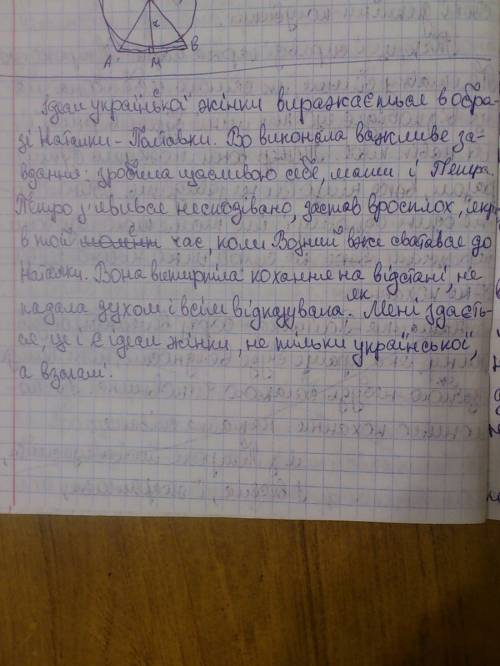 А М В
Ідеал української жінки виражається в обра-
зі Наталки-Полтавки. Во виконала важливе за-
вдання: зробила щасливою себе, маши і Петра.
Петро з'явився несподівано, застав вросплох, якраз
в той момент час, коли Возний вже сватався до
Наталки. Вона витерпіла кохання на відстані, не
падала духом і всім відказувала. Мені здаєть-
як
ся це і є ідеал жінки, не тільки української,
а взагалі.